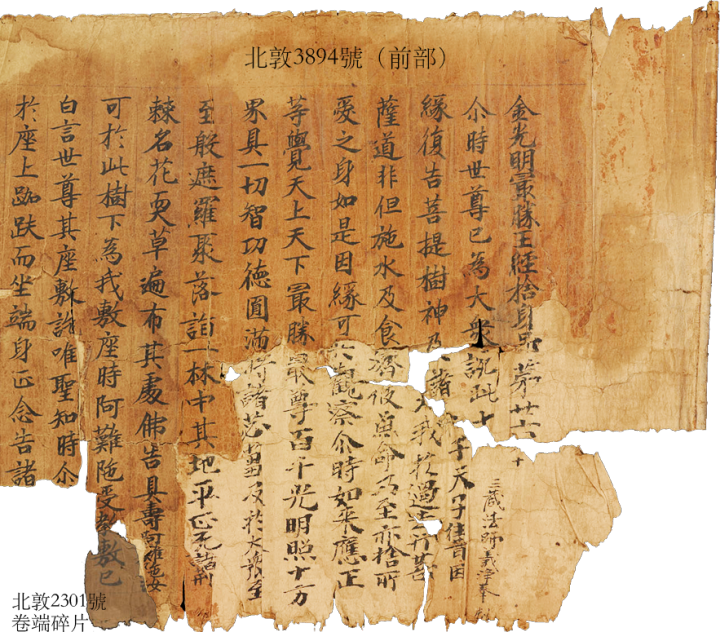 北敦3894號（前部）
金光明最勝王經捨身品第廿六
三藏法師義淨奉
尒時世尊已為大衆說此十千天子往昔因
緣復告菩提樹神及諸大衆我於過去行菩
薩道非但施水及食濟彼魚命乃至亦捨所
愛之身如是因緣可共觀察尒時如來應正
等覺天上天下最勝最尊百千光明照十方
界具一切智功德圓滿將諸苾芻及於大衆至
至般遮羅聚落詣一林中其地平正无諸荊
棘名花耎草遍布其處佛告具壽阿難陁汝
可於此樹下為我敷座時阿難陁受教敷已
白言世尊其座敷訖唯聖知時尒
於座上跏趺而坐端身正念告諸
北敦2301號
卷端碎片